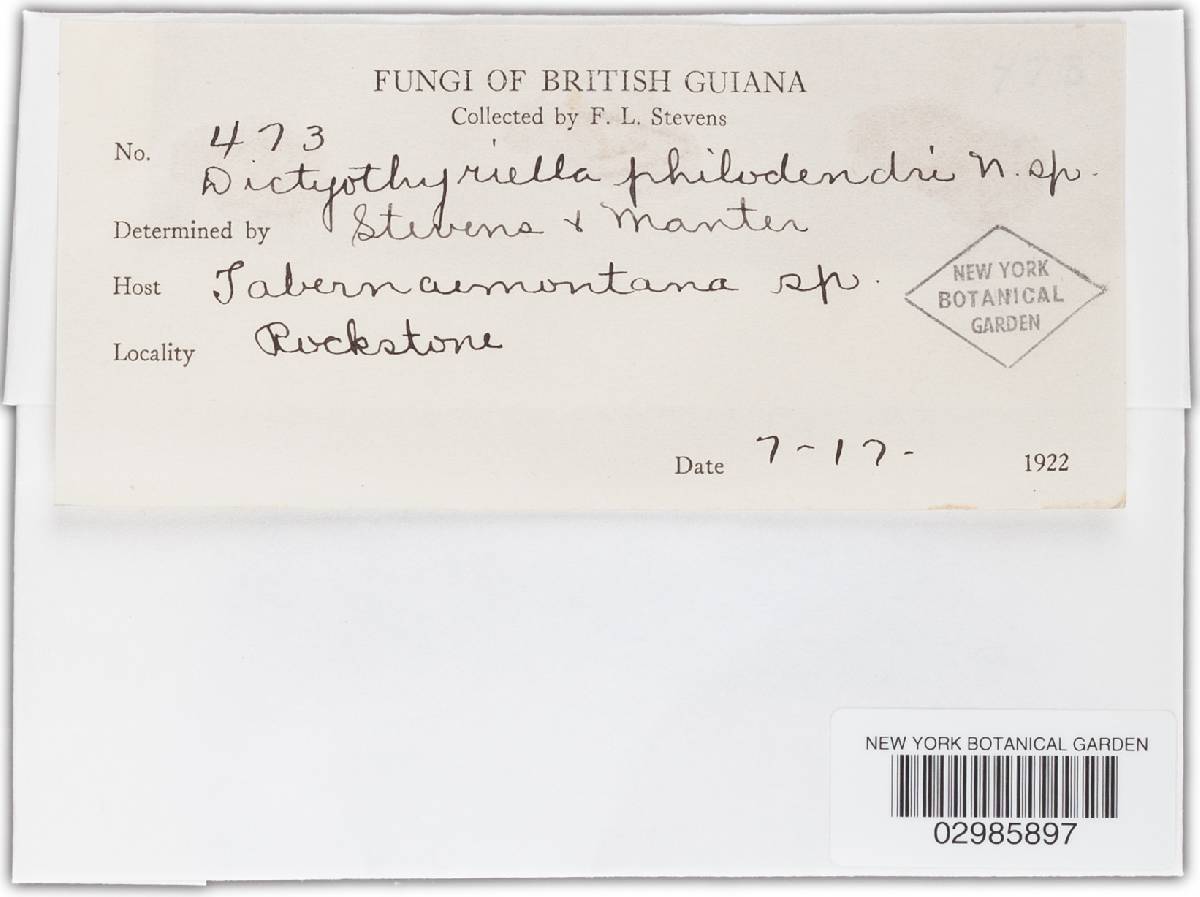 FUNGI OF BRITISH GUIANA
Collected by F. L. Stevens
No. 473
Dictyothyriella philodendri N. sp.
Determined by Stevens & Manter
Host Tabernaemontana sp.
Locality Rockstone
NEW YORK
BOTANICAL
GARDEN
Date 7-17- 1922
NEW YORK BOTANICAL GARDEN
02985897